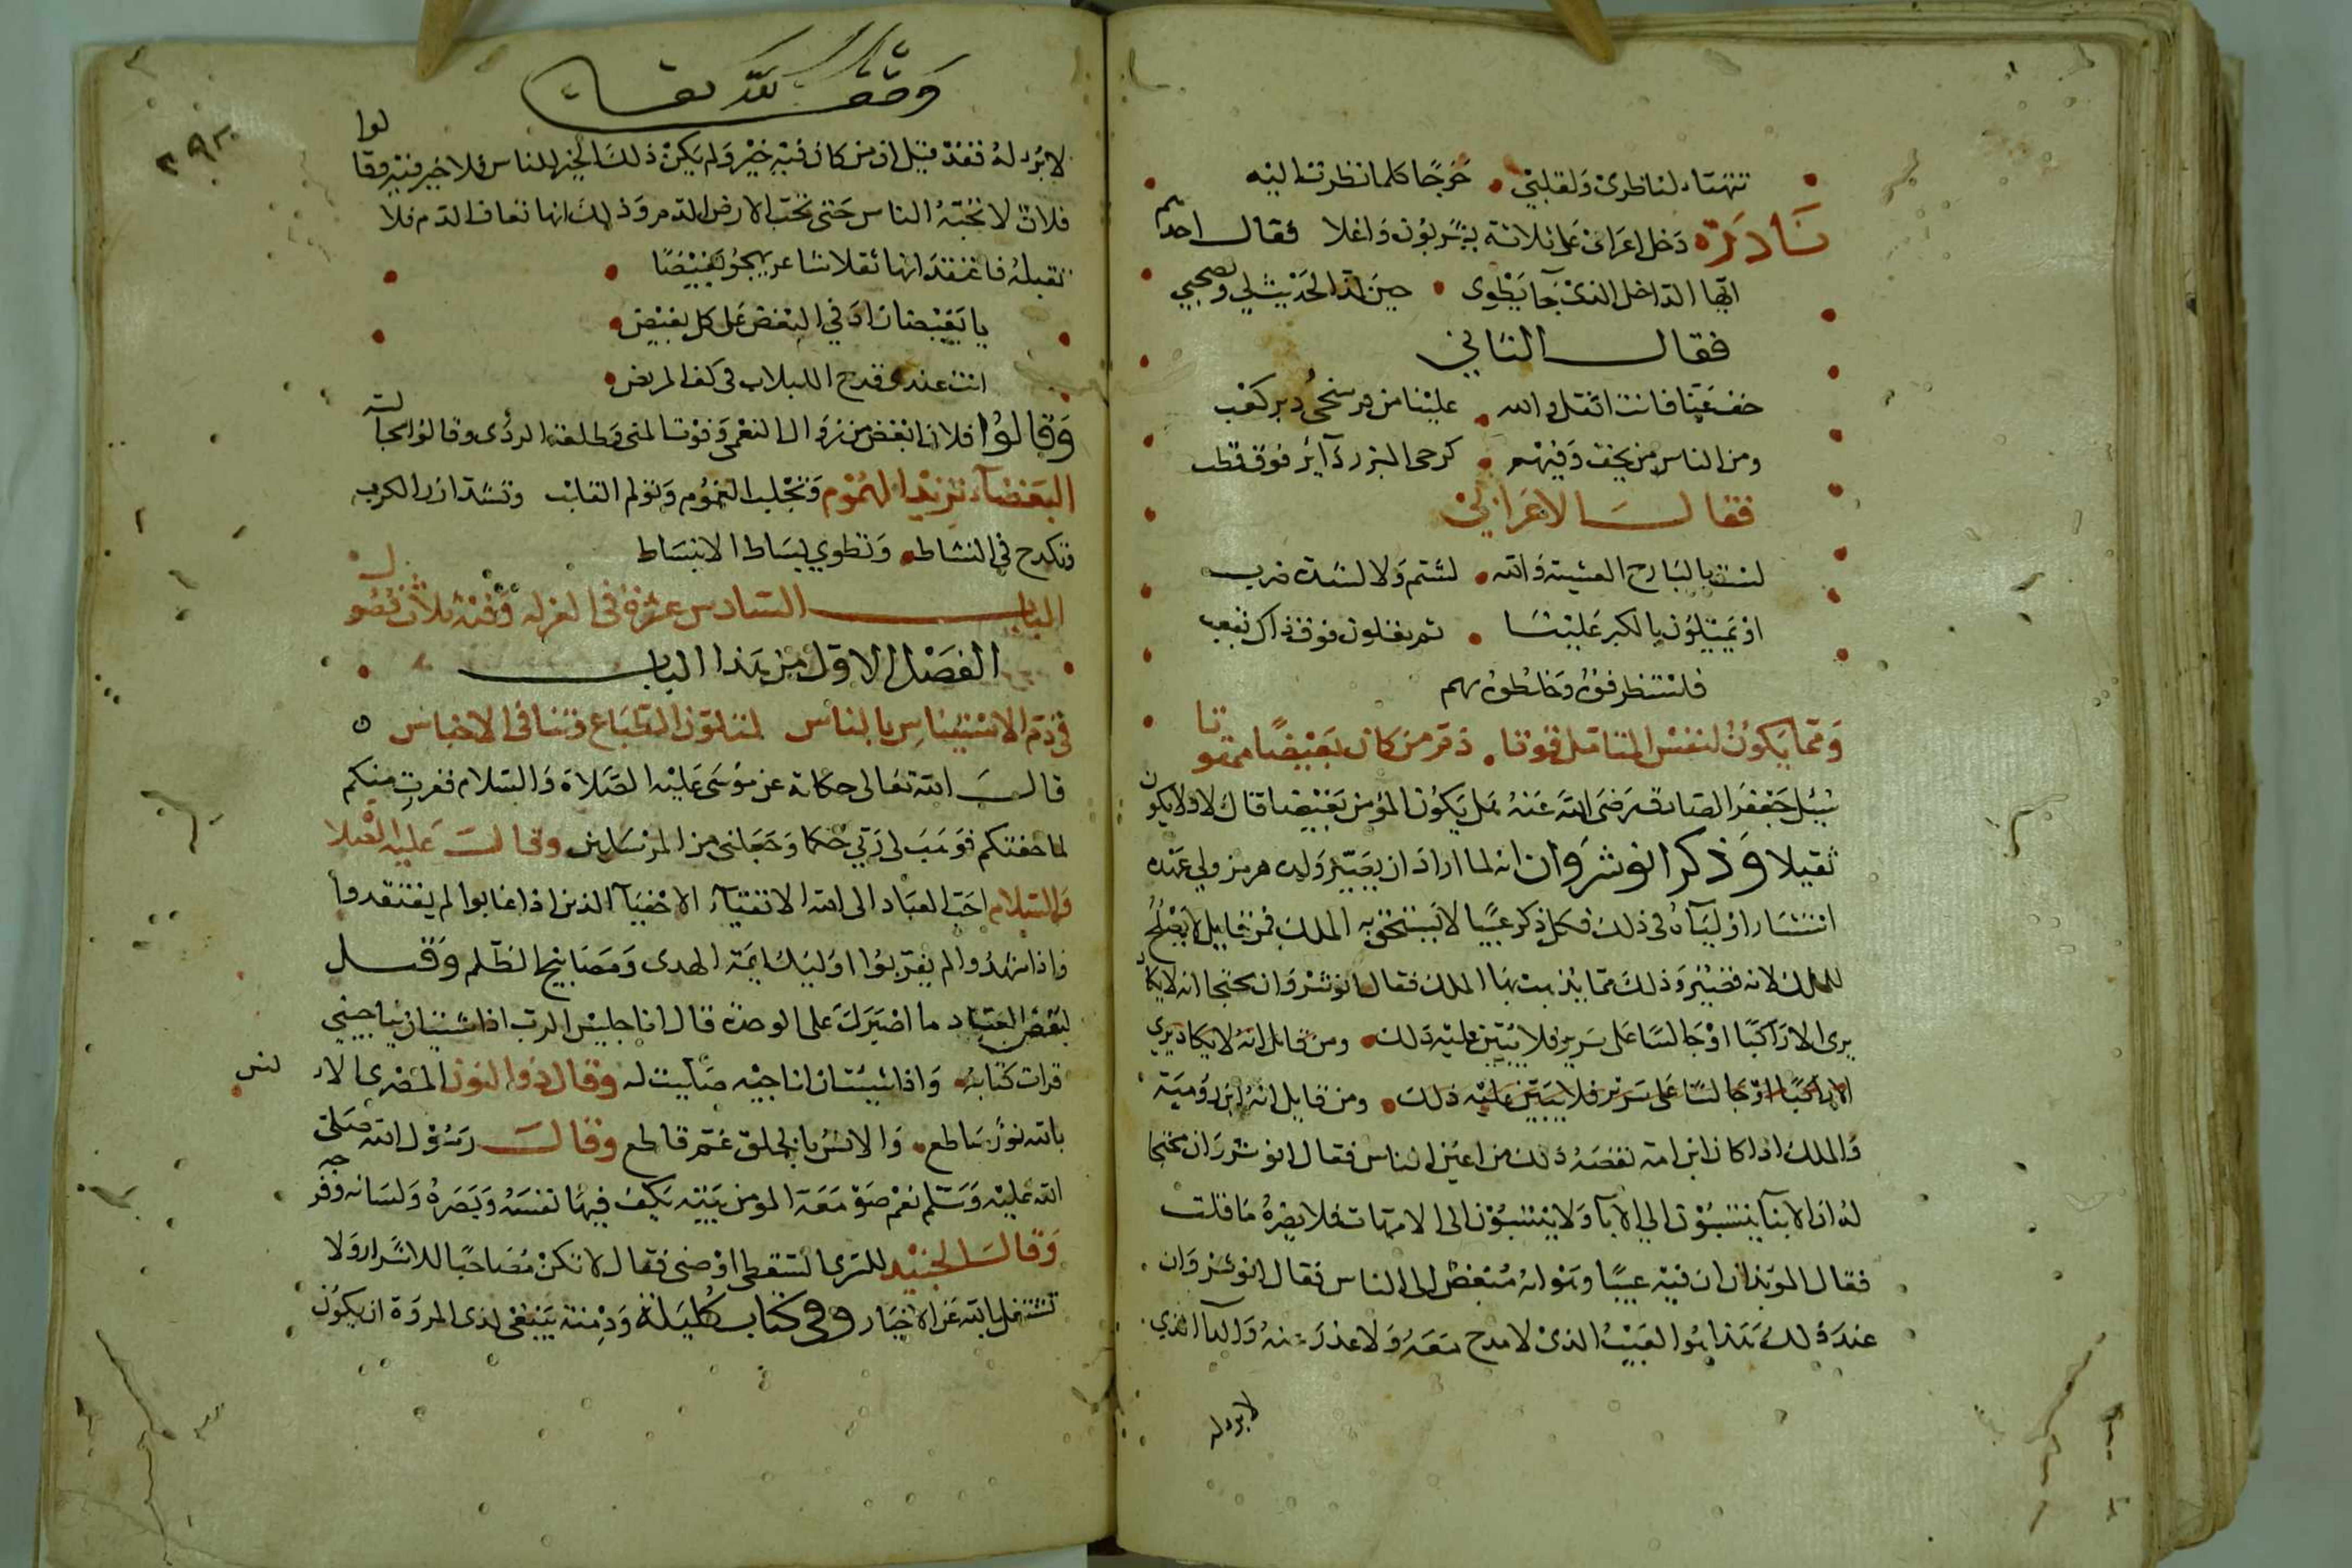 تتهناء لناظري ولقلبي • حرجا كلما نظرت اليه
نادرة دخل اعرابي على ثلاثة يشربون واغلا فقال احدهم
ايها الداخل الذي جا يطوى • حين لذ الحديث لي ولصحبي
فقال الثاني
خف عنا فانت اثقل والله • علينا من فرسخي دير كعب
ومن الناس من يخف وفيهم • كرحى البزر دآير فوق قطب
فقال الاعرابي
لست بالبارح العشية والله • لشتم ولا لشدة ضرب
او تميلون بالكبر علينا • ثم يغلون فوق ذاك بقعب
فاستظرفوه وخلطوه بهم
ومما يكون لنفس المتاقل قوتا • ذم من كان بغيضا ممقوتا
سيل جعفر الصادق رضى الله عنه هل يكون المؤمن بغيضا قال لا ولا يكون
ثقيلا وذكر انوشروان انه لما اراد ان يصير ولده هرمز ولي عهده
استشار اوليآه في ذلك فكل ذكر عيبا لا يستحق به الملك فمن قايل لا يصلح
للملك لانه قصير وذلك مما يذهب بهآ الملك فقال انوشروان محتجا انه لا يكاد
يرى الا راكبا او جالسا على سرير فلا يتبين عليه ذلك • ومن قايل انه لا يكاد يري
الا راكبا او جالسا على سرير فلا يتبين عليه ذلك • ومن قايل انه ابن رومية
والملك اذا كان ابن امة نقصه ذلك من اعين الناس فقال انوشروان محتجا
له ان الابنآ ينتسبون الي الآبآ ولا ينتسبون الى الامهات فلا يضره ما قلت
فقال الموبذان ان فيه عيبا وهو انه مبغض الى الناس فقال انوشروان
عند ذلك هذا هو العيب الذي لا مدح معه ولا عذر عنه والدآ الذي
لا برء له
وقف لله تعالى
٢٩٣
لا برء له فقد قيل ان من كان فيه خير ولم يكن ذلك الخير للناس فلا خير فيه وقالوا
فلان لا تحبه الناس حتى تحب الارض الدم وذلك انها تعاف الدم فلا
تقبله فاذا فقد انها ثقلا شاعر يهجو بغيضا
يا بغيضا زاد في البغض على كل بغيض •
انت عندي قدح اللبلاب في كف المريض •
وقالوا فلان ابغض من زوال النعم وفوت المنى وطلعة الردى وقالوا مجالسة
البغضآء تزيد الهموم وتجلب الغموم وتولم القلب وتشد ازر الكرب
وتكدح في النشاط • وتطوي بساط الانبساط
الباب السادس عشر في العزلة وفيه ثلاث فصول
الفصل الاول من هذا الباب
في ذم الاستيناس بالناس لتلون الطباع وتنافي الاجناس
قال الله تعالى حكاية عن موسى عليه الصلاة والسلام ففررت منكم
لما خفتكم فوهب لي ربي حكما وجعلني من المرسلين وقال عليه الصلا
والسلام احب العباد الى الله الاتقيآء الاخفيآ الذين اذا غابوا لم يفتقدوا
واذا شهدوا لم يعرفوا اوليك ايمة الهدى ومصابيح الظلم وقيل
لبعض العباد ما اصبرك على الوحدة قال انا جليس الرب اذا شيت ان يناجيني
قرات كتابه • واذا شيت ان اناجيه صليت له وقال ذو النون المصري الانس
بالله نور ساطع • والانس بالخلق غم قاطع وقال رسول الله صلى
الله عليه وسلم نعم صومعة المومن بيته يكف فيها نفسه وبصره ولسانه وفرجه
وقال الجنيد للسري السقطي اوصني فقال لا تكن مصاحبا للاشرار ولا
تشتغل بالله عن الاخيار وفي كتاب كليلة ودمنة ينبغي لذي المروة ان يكون